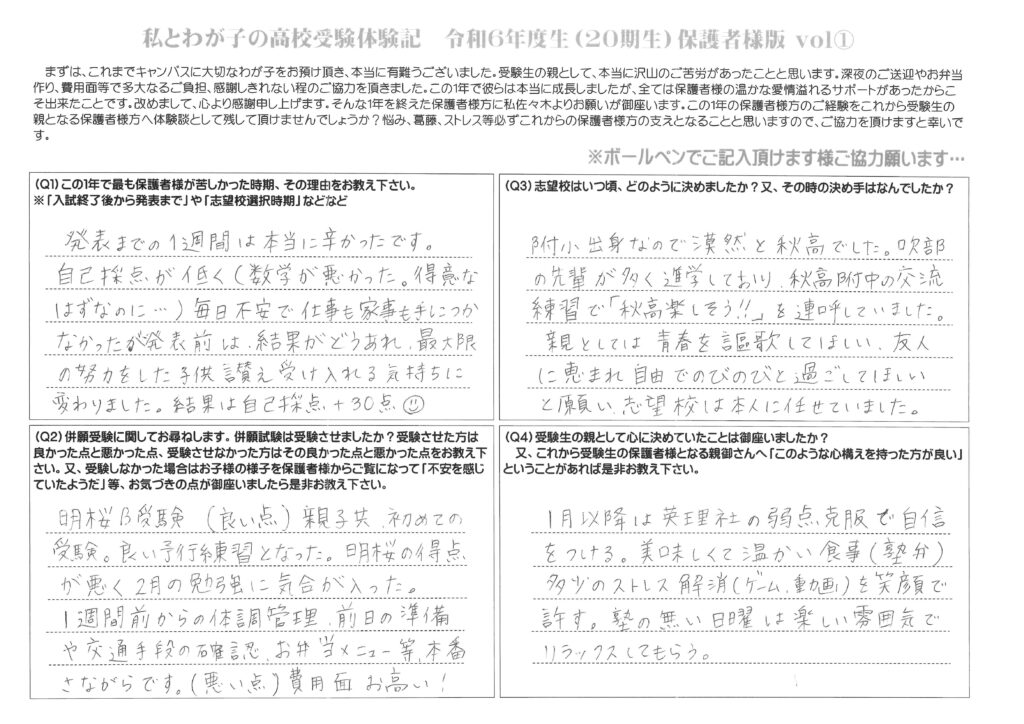 私とわが子の高校受験体験記　令和6年度生（20期生）保護者様版 vol①
まずは、これまでキャンパスに大切なわが子をお預け頂き、本当に有難うございました。受験生の親として、本当に沢山のご苦労があったことと思います。深夜のご送迎やお弁当
作り、費用面等で多大なるご負担、感謝しきれない程のご協力を頂きました。この1年で彼らは本当に成長しましたが、全ては保護者様の温かな愛情溢れるサポートがあったからこ
そ出来たことです。改めまして、心より感謝申し上げます。そんな1年を終えた保護者様方に私佐々木よりお願いが御座います。この1年の保護者様方のご経験をこれから受験生の
親となる保護者様方へ体験談として残して頂けませんでしょうか？悩み、葛藤、ストレス等必ずこれからの保護者様方の支えとなることと思いますので、ご協力を頂けますと幸いで
す。
※ボールペンでご記入頂けます様ご協力願います…
（Q1）この1年で最も保護者様が苦しかった時期、その理由をお教え下さい。
※「入試終了後から発表まで」や「志望校選択時期」などなど
発表までの1週間は本当に辛かったです。
自己採点が低く（数学が悪かった。得意な
はずなのに…）毎日不安で仕事も家事も手につか
なかったが発表前は、結果がどうあれ、最大限
の努力をした子供讃え受け入れる気持ちに
変わりました。結果は自己採点+30点☺
（Q2）併願受験に関してお尋ねします。併願試験は受験させましたか？受験させた方は
良かった点と悪かった点、受験させなかった方はその良かった点と悪かった点をお教え下
さい。又、受験しなかった場合はお子様の様子を保護者様からご覧になって「不安を感じ
ていたようだ」等、お気づきの点が御座いましたら是非お教え下さい。
明桜B受験　（良い点）親子共、初めての
受験。良い予行練習となった。明桜の得点
が悪く2月の勉強に気合が入った。
1週間前からの体調管理、前日の準備
や交通手段の確認、お弁当メニュー等、本番
さながらです。（悪い点）費用面　お高い！
（Q3）志望校はいつ頃、どのように決めましたか？又、その時の決め手はなんでしたか？
附小出身なので漠然と秋高でした。吹部
の先輩が多く進学しており、秋高附中の交流
練習で「秋高楽しそう!!」を連呼していました。
親としては青春を謳歌してほしい、友人
に恵まれ自由でのびのびと過ごしてほしい
と願い、志望校は本人に任せていました。
（Q4）受験生の親として心に決めていたことは御座いましたか？
又、これから受験生の保護者様となる親御さんへ「このような心構えを持った方が良い」
ということがあれば是非お教え下さい。
1月以降は英理社の弱点克服で自信
をつける。美味しくて温かい食事（塾弁）
多少のストレス解消（ゲーム、動画）を笑顔で
許す。塾の無い日曜は楽しい雰囲気で
リラックスしてもらう。